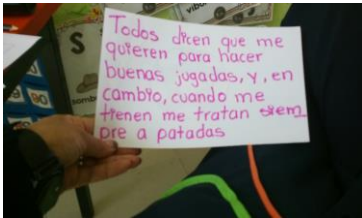 Todos dicen que me
quieren para hacer
buenas jugadas, y, en
cambio, cuando me
tienen me tratan siem_
pre a patadas
S
90